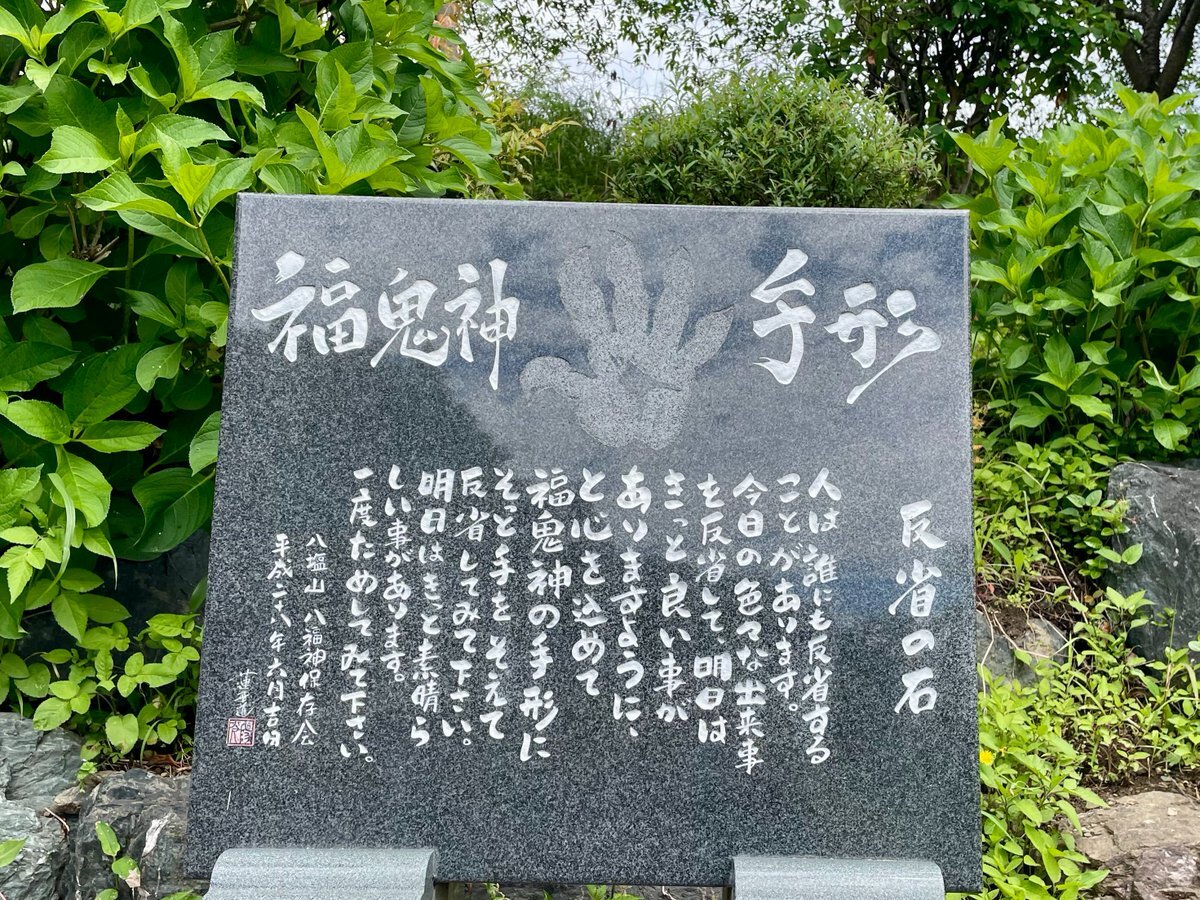 福鬼神 手形
反省の石
人は誰にも反省する
ことがあります。
今日の色々な出来事
を反省して、明日は
きっと良い事が
ありますように、
と心を込めて
福鬼神の手形に
そっと手をそえて
反省してみて下さい。
明日はきっと素晴ら
しい事があります。
一度ためしてみて下さい。
八塩山 八福神保存会
平成二十八年六月吉日